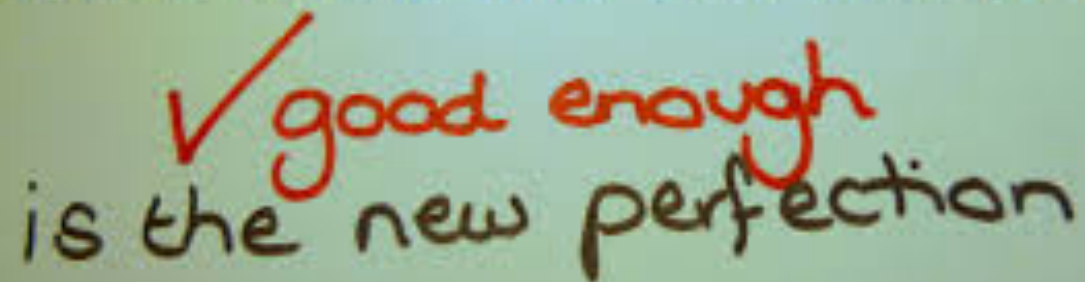 ✓ good enough
is the new perfection